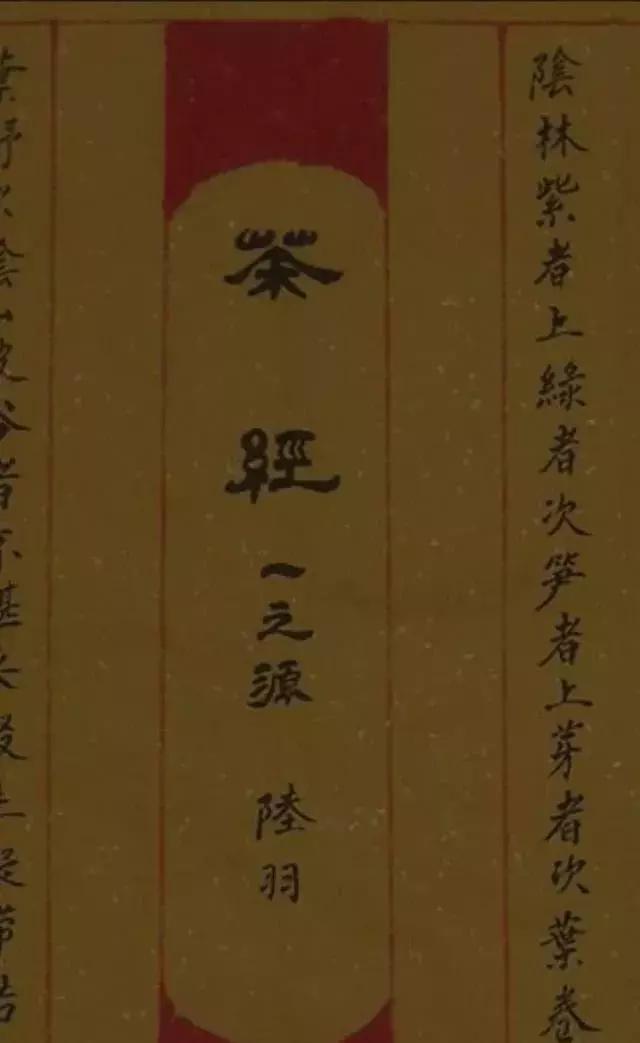 陰林紫者上綠者次笋者上芽者次葉卷
茶經
一之源
陸羽
葉舒次陰山坡谷者不堪采掇性凝滯結